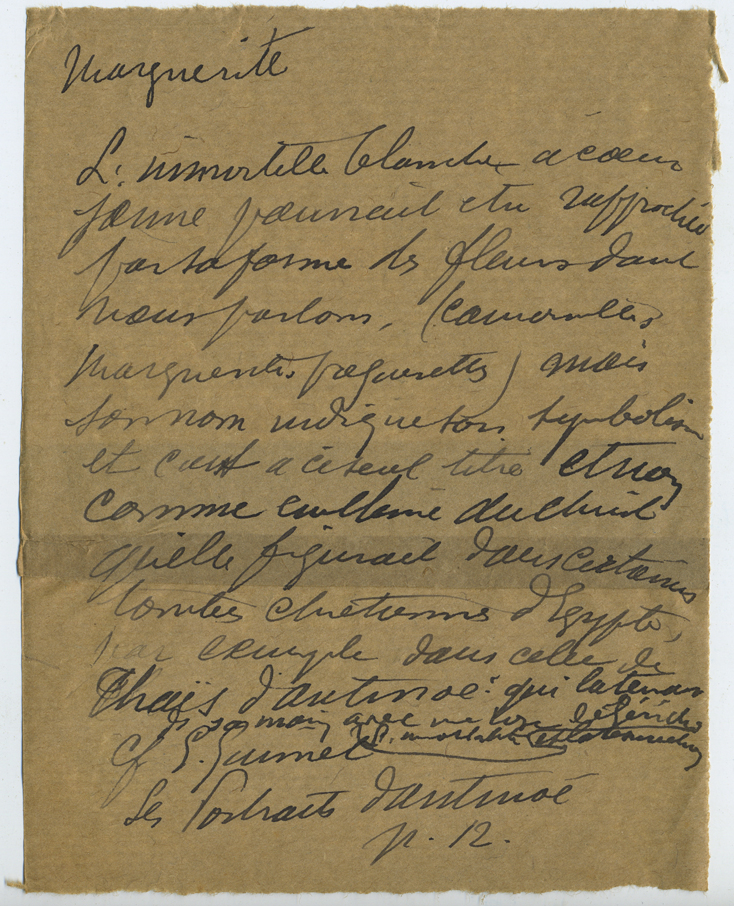 Marguerite
L'immortelle blanche à coeur
jaune pourrait etre rapprochée
par sa forme des fleurs dont
nous parlons, (camomilles
Marguerites, paquerettes) mais
son nom indique son symbolisme
et c'est a ce seul titre et non
comme emblème du Christ
qu'elle figurait dans certaines
tombes chrétiennes d'Egypte,
par exemple dans celle de
Thaïs d'Antinoé: qui la tenait
ds sa main avec une rose de Jéricho
cf E. Guimet L'immortelle
Les Portraits d'Antinoé
p. 12.